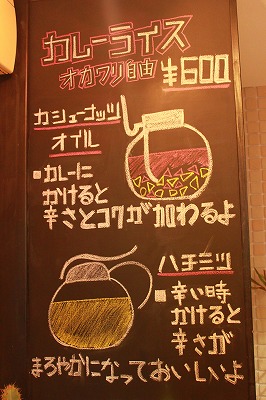 カレーライス
オカワリ自由 ¥600
カシューナッツ
オイル
カレーに
かけると
辛さとコクが加わるよ
ハチミツ
辛い時
かけると
辛さが
まろやかになっておいしいよ